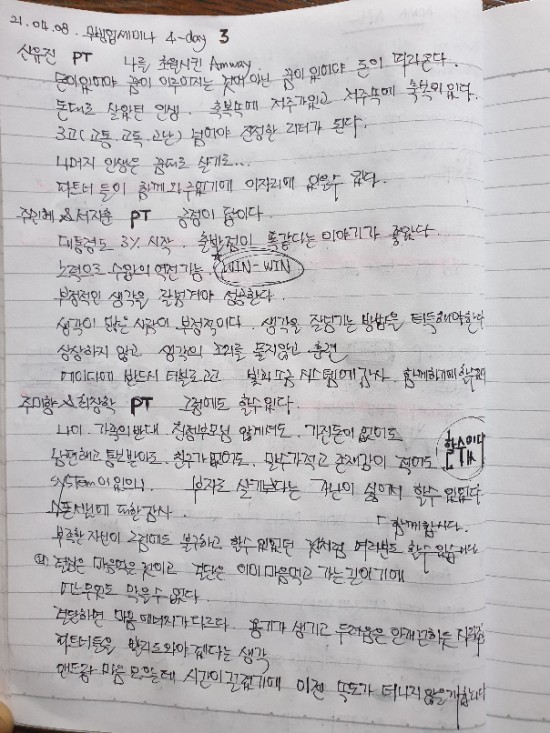 21. 04. 08. 무빙업세미나 4-day 3
신유진 PT 나를 초월시킨 Amway.
돈이있어야 꿈이 이루어지는 것이 아닌 꿈이 있어야 돈이 따라온다.
돈대로 살았던 인생. 축복속에 저주가있고 저주속에 축복이있다.
3고(고통.고독.고난) 넘어야 진정한 리더가 된다.
나머지 인생은 꿈대로 살기로...
파트너들이 함께 와주었기에 이자리에 있을수 있다.
& 서지훈 PT 긍정이 답이다.
대통령도 3% 시작. 출발점이 똑같다는 이야기가 좋았다
노력으로 수입의 역전가능 WIN-WIN
부정적인 생각을 잘넘겨야 성공한다.
생각이 많은 사람이 부정적이다. 생각을 잘넘기는 방법을 터득해야한다
상상하지 않고 생각의 꼬리를 물지않고 훈련
반드시 시스템에 감사. 함께하기에
주미향 & 최장학 PT 그럼에도 할수있다.
나이. 가족의반대 친정부모님 안계셔도. 가진돈이 없어도 할수있다
남편해고 통보받아도. 친구가없어도. 말수가적고 존재감이 적어도
system이 있으니. 부자로 살기보다는 가난이 싫어서 할수있었다
스폰서님에 대한감사. 「함께합시다.
부족한 자신이 그럼에도 불구하고 할수있었던 것처럼 여러분도 할수있습니다
결심은 마음먹은것이고 결단은 이미 마음먹고 가는길이기에
아무것도 막을수 없다.
결단하면 마음 에너지가 다르다. 용기가 생기고 두려움은
파트너들을 반드시 도와야 겠다는 생각
마음 모을때 시간이 이전 속도가